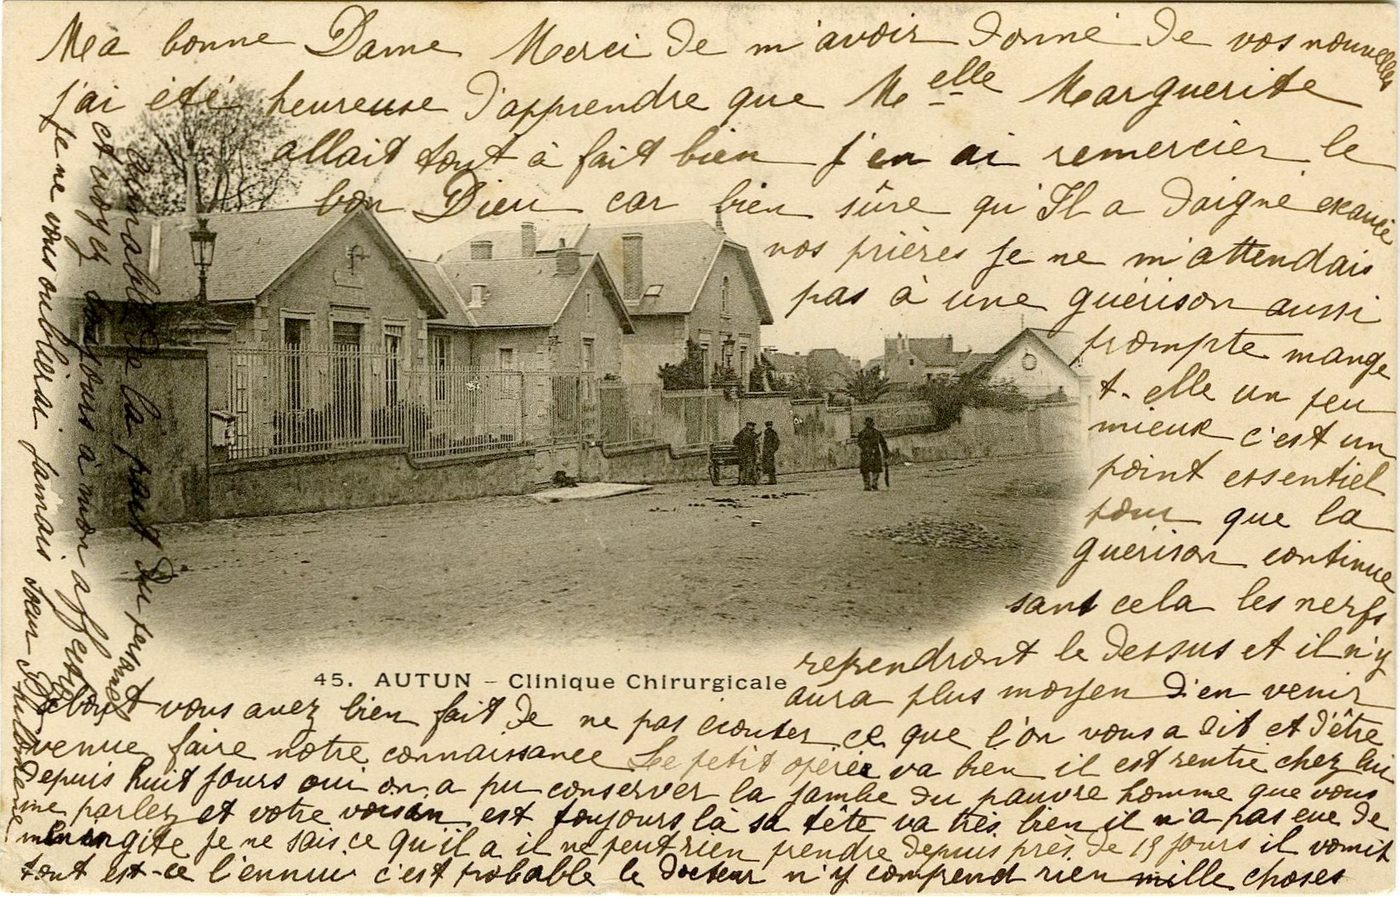 Ma bonne Dame Merci de m'avoir donné de vos nouvelles
j'ai été heureuse d'apprendre que Melle Marguerite
allait tout à fait bien j'en ai remercier le
bon Dieu car bien sûre qu'Il a daigné exaucé
vos prières je ne m'attendais
pas à une guérison aussi
prompte mange
t-elle un peu
mieux c'est un
point essentiel
pour que la
guérison continue
sans cela les nerfs
reprendront le dessus et il n'y
aura plus moyen d'en venir
45. AUTUN - Clinique Chirurgicale
à bout vous avez bien fait de ne pas écouter ce que l'on vous a dit et d'être
venue faire notre connaissance Le petit opérée va bien il est rentré chez lui
depuis huit jours oui on a pu conserver la jambe du pauvre homme que vous
me parlez et votre voisin est toujours là sa tête va très bien il n'a pas eue de
méningite je ne sais ce qu'il a il ne peut rien prendre depuis près de 15 jours il vomit
tout est-ce l'ennui c'est probable le docteur n'y comprend rien mille choses
aimable de la part du personnel
et voyez toujours à mon affection
je ne vous oublierai jamais soeur Philomène